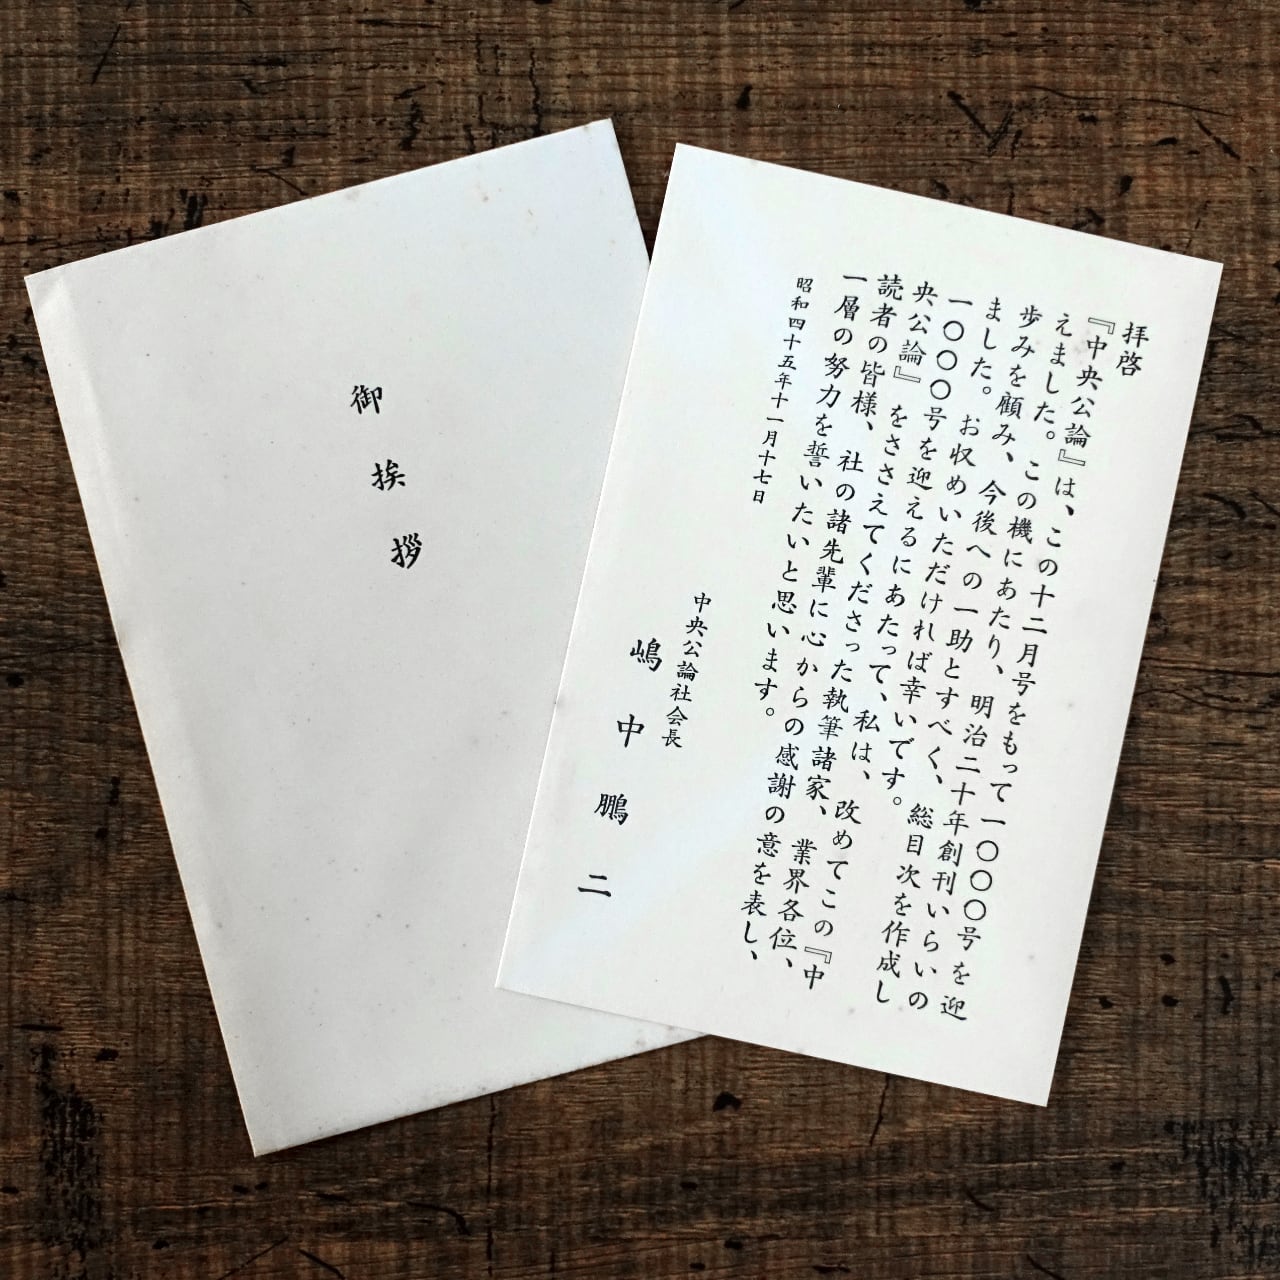 御挨拶
拝啓
『中央公論』は、この十二月号をもって一〇〇〇号を迎
えました。この機にあたり、明治二十年創刊いらいの
歩みを顧み、今後への一助とすべく、総目次を作成し
ました。お収めいただければ幸いです。
一〇〇〇号を迎えるにあたって、私は、改めてこの『中
央公論』をささえてくださった執筆諸家、業界各位、
読者の皆様、社の諸先輩に心からの感謝の意を表し、
一層の努力を誓いたいと思います。
昭和四十五年十一月十七日
中央公論社会長
嶋中鵬二